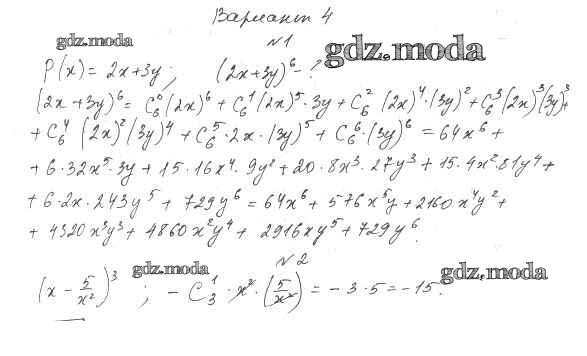 Вариант 4
gdz.moda
№1
gdz.moda
P(x) = 2x+3y; (2x+3y)^6 - ?
(2x+3y)^6 = C_6^0 (2x)^6 + C_6^1 (2x)^5 · 3y + C_6^2 (2x)^4 · (3y)^2 + C_6^3 (2x)^3 (3y)^3 +
+ C_6^4 (2x)^2 (3y)^4 + C_6^5 · 2x · (3y)^5 + C_6^6 · (3y)^6 = 64x^6 +
+ 6 · 32x^5 · 3y + 15 · 16x^4 · 9y^2 + 20 · 8x^3 · 27y^3 + 15 · 4x^2 · 81y^4 +
+ 6 · 2x · 243y^5 + 729y^6 = 64x^6 + 576x^5y + 2160x^4y^2 +
+ 4320x^3y^3 + 4860x^2y^4 + 2916xy^5 + 729y^6.
№2
gdz.moda
gdz.moda
(x - 5/x^2)^3 ; - C_3^1 · x^2 · (5/x^2) = -3 · 5 = -15.